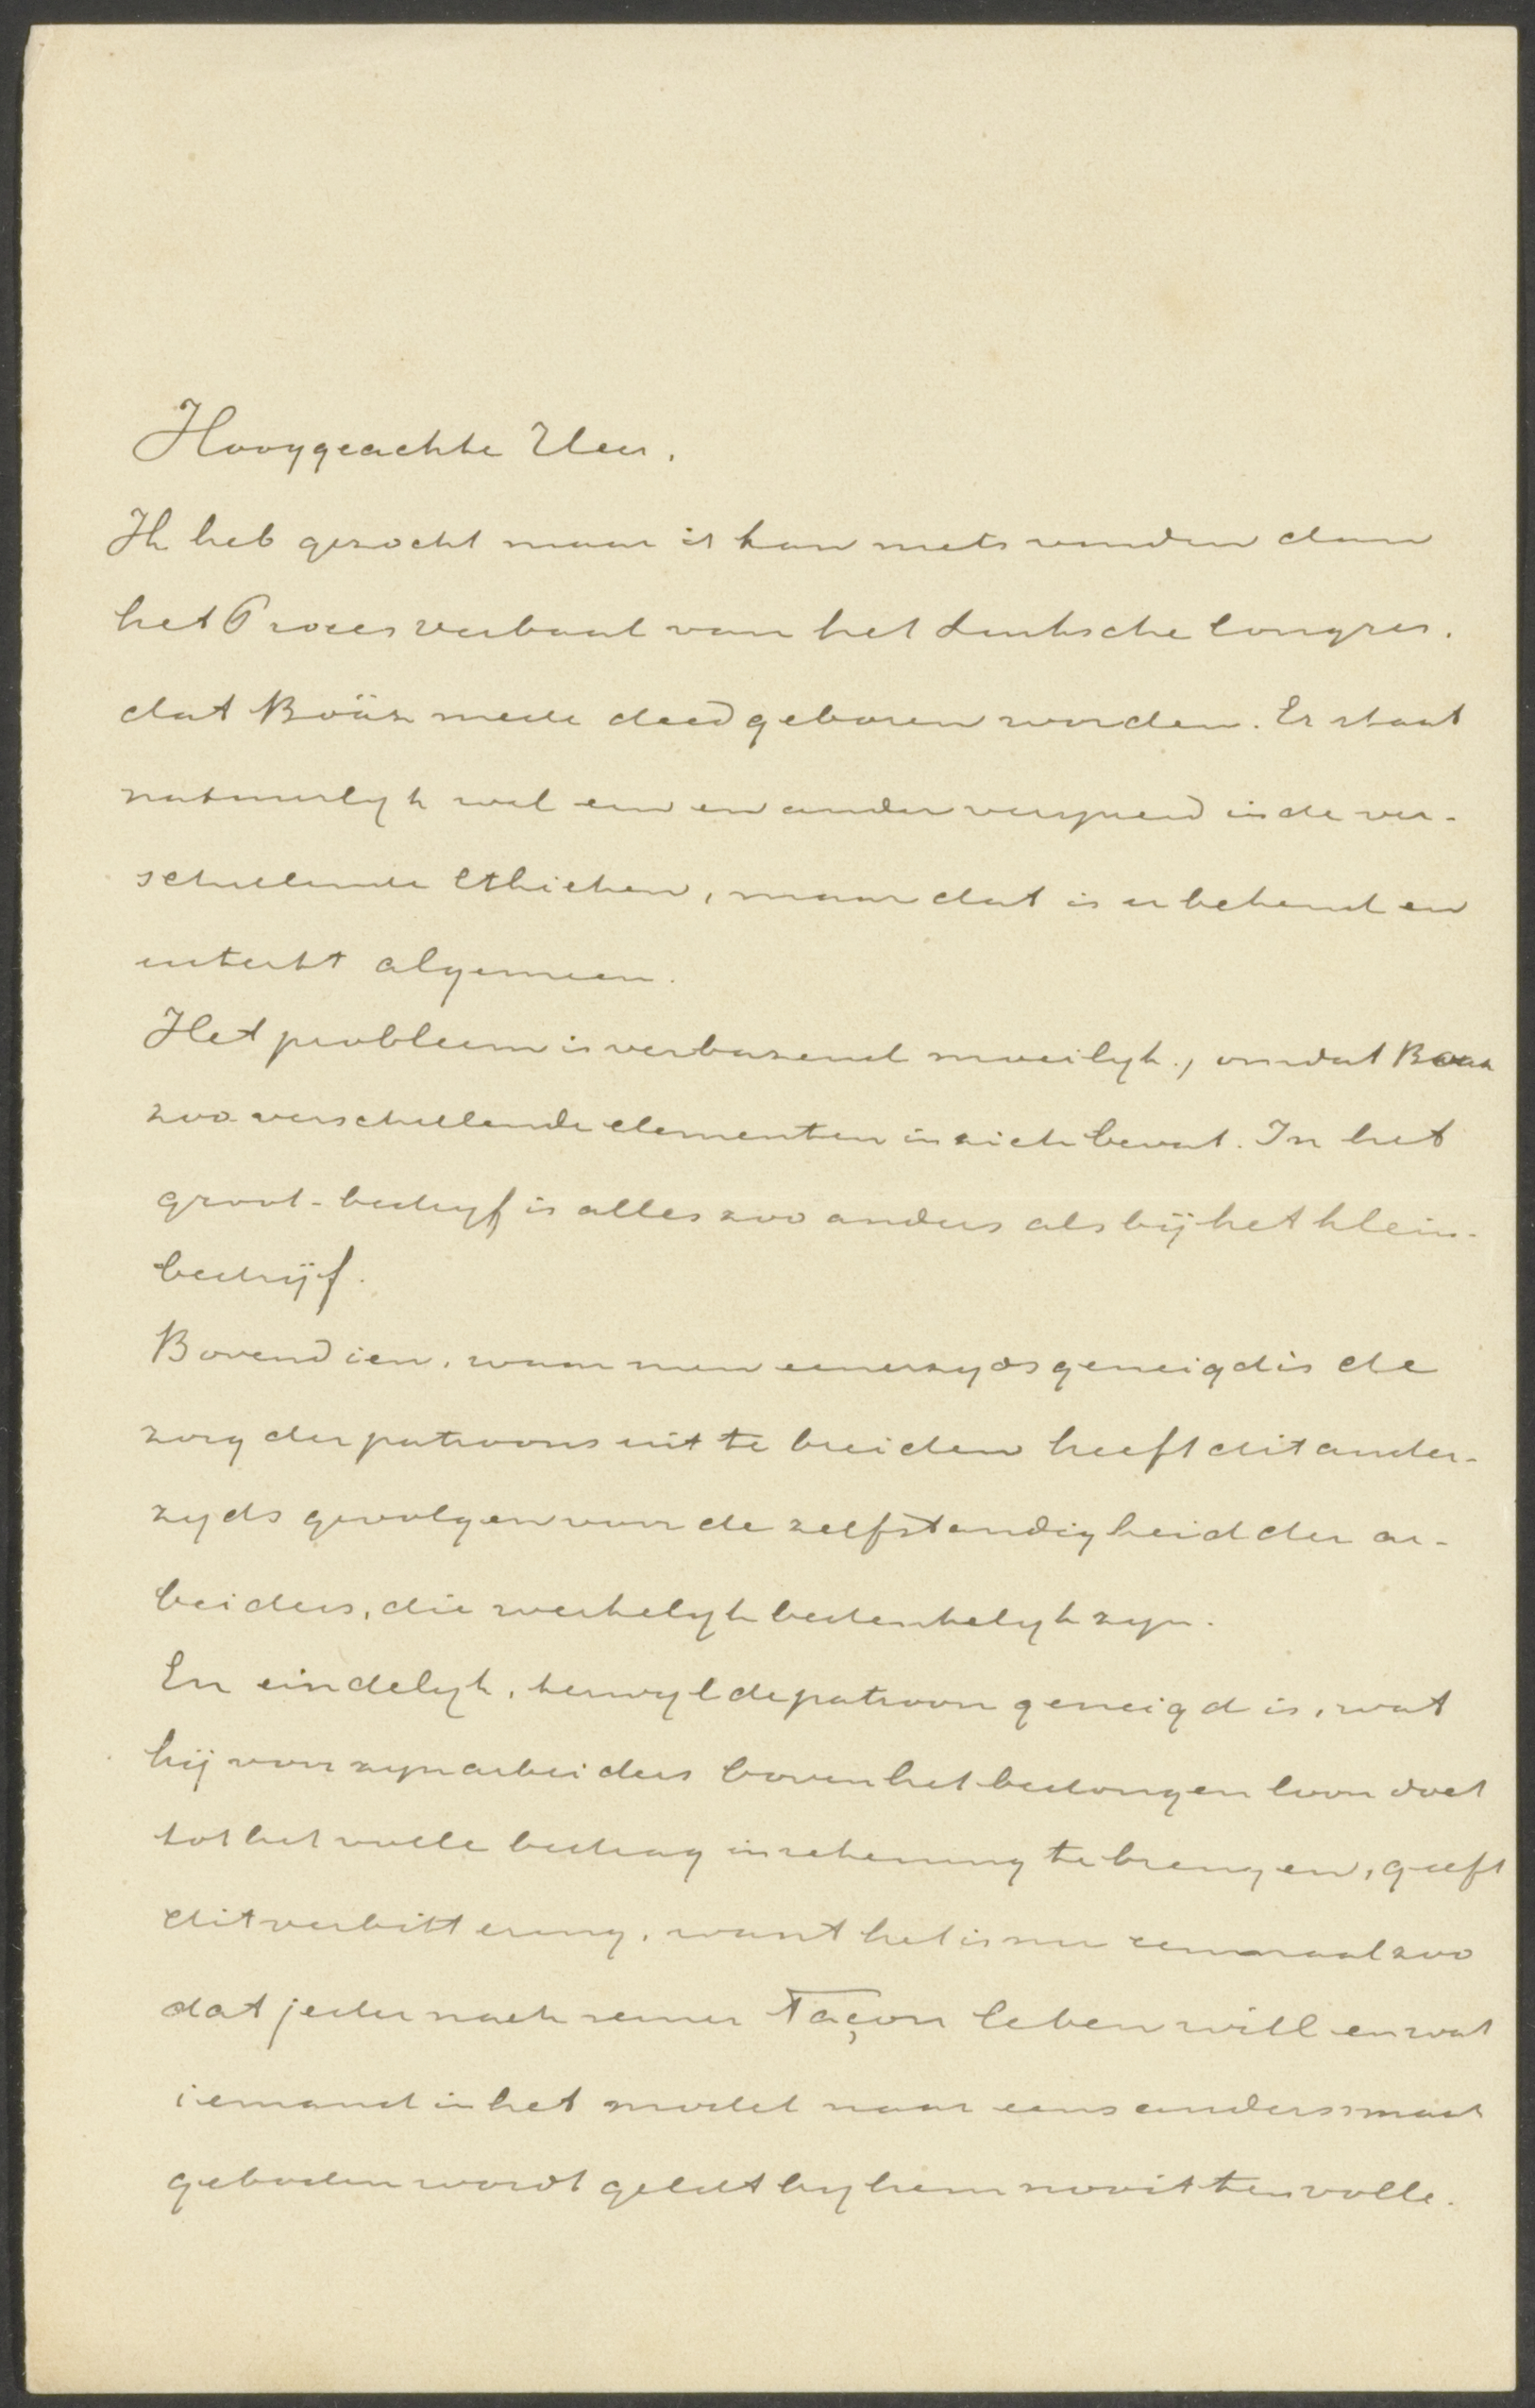 Hooggeachte Heer.
Ik heb gezocht maar ik kan niets vinden dan
het Proces verbaal van het Duitsche Congres.
dat Boäz mede deed geboren worden. Er staat
natuurlyk wel een en ander verspreid in de ver-
schillende Ethieken, maar dat is u bekend en
uiterst algemeen.
Het probleem is verbazend moeilyk, omdat Boaz
zoo verschillende elementen in zich bevat. In het
groot-bedryf is alles zoo anders als bij het klein-
bedrijf.
Bovendien, waar men eenerzyds geneigd is de
zorg der patroons uit te breiden heeft dit ander-
zyds gevolgen voor de zelfstandigheid der ar-
beiders, die werkelyk bedenkelyk zyn.
En eindelyk, terwyl de patroon geneigd is, wat
hij voor zyn arbeiders boven het bedongen loon doet
tot het volle bedrag in rekening te brengen, geeft
dit verbittering, want het is nu eenmaal zoo
dat jeder nach seiner Façon leben will en wat
iemand in het model naar eens anders smaak
geboden wordt geldt by hem nooit ten volle.